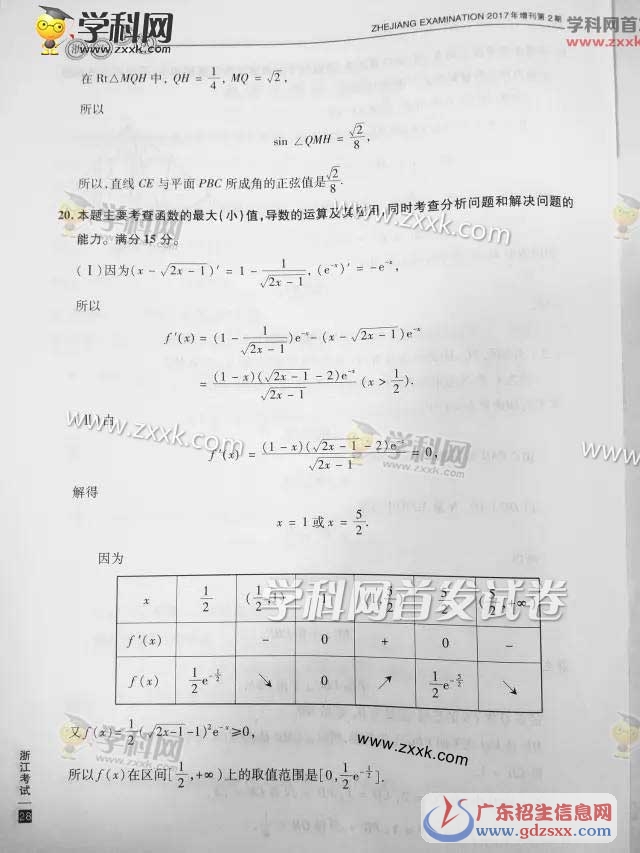 学科网
www.zxxk.com
ZHEJIANG EXAMINATION 2017年增刊第2期
学科网首发
www.zxxk.com
在 Rt△MQH 中, QH = 1/4, MQ = √2,
所以
sin ∠QMH = √2/8,
所以,直线 CE 与平面 PBC 所成角的正弦值是 √2/8.
20. 本题主要考查函数的最大(小)值,导数的运算及其应用,同时考查分析问题和解决问题的
能力。满分15分。
(Ⅰ)因为(x - √(2x - 1))′ = 1 - 1/√(2x - 1), (e⁻ˣ)′ = -e⁻ˣ,
所以
f′(x) = (1 - 1/√(2x - 1))e⁻ˣ - (x - √(2x - 1))e⁻ˣ
= (1 - x)(√(2x - 1) - 2)e⁻ˣ/√(2x - 1) (x > 1/2).
(Ⅱ)由
f′(x) = (1 - x)(√(2x - 1) - 2)e⁻ˣ/√(2x - 1) = 0,
解得
x = 1 或 x = 5/2.
因为
x 1/2 (1/2,1) 1 (1,5/2) 5/2 (5/2,+∞)
f′(x) - 0 + 0 -
f(x) 1/2 e^(-1/2) ↘ 0 ↗ 1/2 e^(-5/2) ↘
又 f(x) = 1/2(√(2x-1) - 1)²e⁻ˣ ≥ 0,
所以 f(x) 在区间[1/2, +∞)上的取值范围是[0, 1/2 e^(-1/2)].
浙江考试
28
www.zxxk.com
学科网
zxxk.com
www.zxxk.com
学科网
zxxk.com
www.zxxk.com
学科网首发试卷
学科网
zxxk.com
www.zxxk.com
广东招生信息网
www.gdzsxx.com